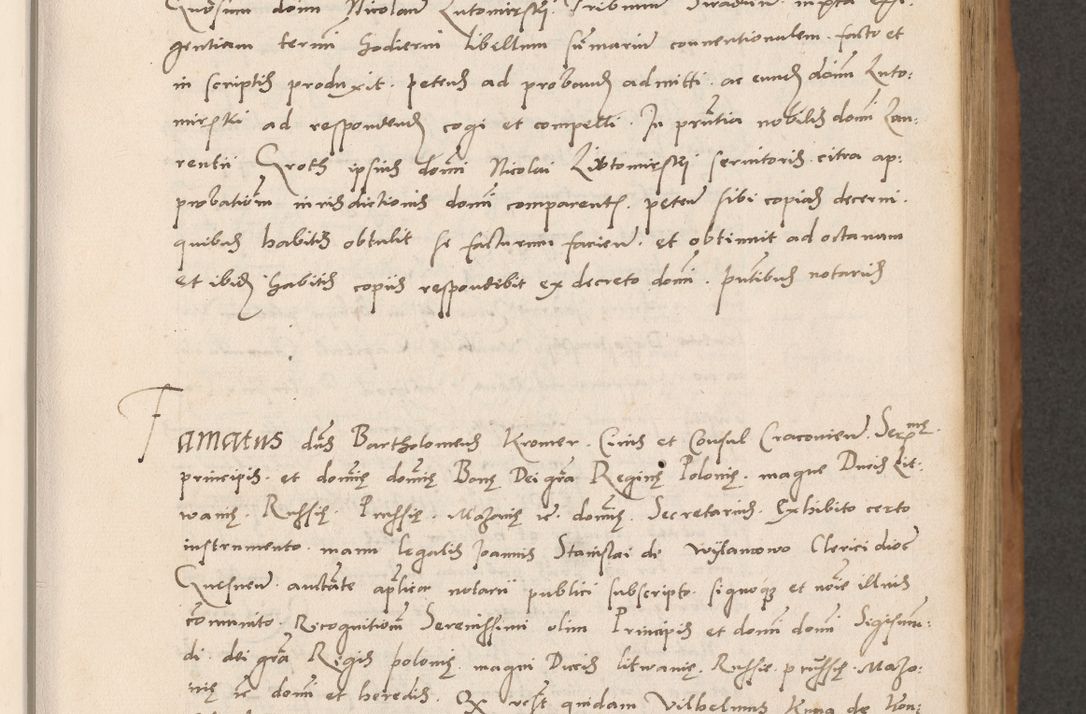 Quesium domi Nicolaum Lutomirskj Tribunum Siradien iuxta exi:
gentiam termi hodierni libellum sumarium conventionalem facto et
in scriptis produxit. petens ad proband admitti. ac eund dnm Luto:
mirski ad respondend cogi et compelli. In pntia nobilis domi Lau:
rentii Groth ipsius domi Nicolai Liutomirskj servitoris. citra ap:
probationem iurisdictionis domi comparents. peten sibi copias decerni.
quibus habitis obtulit se facturum facien. et obtinuit ad octavam
et ibid habitis copiis respondebit ex decreto domi. pntibus notariis
Famatus dns Bartholomeus Kromer. Civis et Consul Cracovien. Sermę
principis. et domię domię Bonę Dei gra Reginę Polonię. magne Ducis Lit:
wanię. Russię. Prussię. Mazovię ic. domię. Secretarius. Exhibito certo
instrumento. manu legalis Joannis Stanislai de Wylamowo Clerici dioc
Gnesnen. auctate aplica notarii publici subscripto. signoqз et noie illius
comunito. Recognitionem Serenissimi olim Principis et domi domi Sigismu:
di. dei gra Regis polonię. magni Ducis litwanię. Russie. prussię. Mazo:
vię ic domi et heredis. Ex rest quidam Vilhelmus Kuna de Kon: